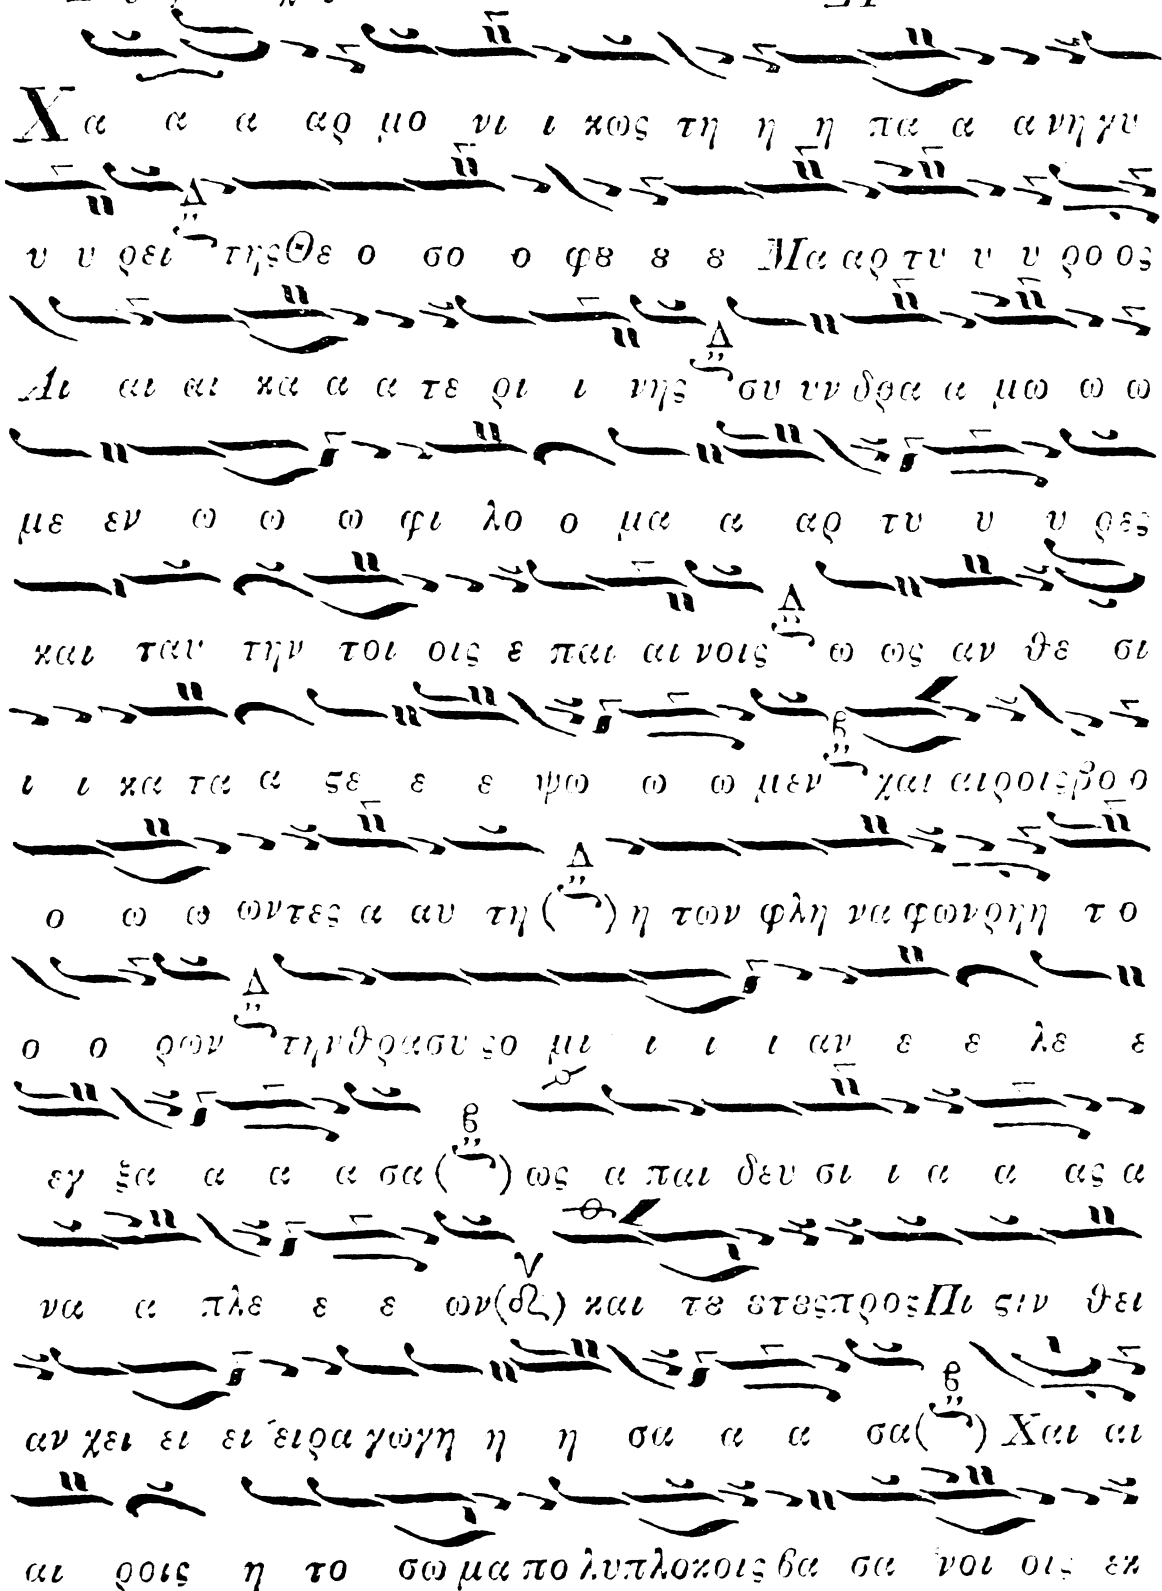 Χα α α αρ μο νι ι κως τη η η πα α α νη γυ
υ υ ρει της Θε ο σο ο φȣ ȣ ȣ Μα αρ τυ υ υ ρο ος
Αι αι αι κα α α τε ρι ι νης συ υν δρα α μω ω ω
με εν ω ω ω φι λο ο μα α αρ τυ υ υ ρες
και ταυ την τοι οις ε παι αι νοις ω ως αν θε σι
ι ι κα τα α ϛε ε ε ψω ω ω μεν χαι αιροις βο ο
ο ω ω ωντες α αυ τη ( ) η των φλη να φων ρη η τ ο
ο ο ρων την θρασυ ϛο μι ι ι ι αν ε ε λε ε
εγ ξα α α α σα ( ) ως α παι δευ σι ι α α ας α
να α πλε ε ε ων ( ) και τȣ ȣτȣς προς Πι ϛιν θει
αν χει ει ει ειρα γωγη η η σα α α σα ( ) Χαι αι
αι ροις η το σω μα πο λυπλοκοις βα σα νοι οις εκ